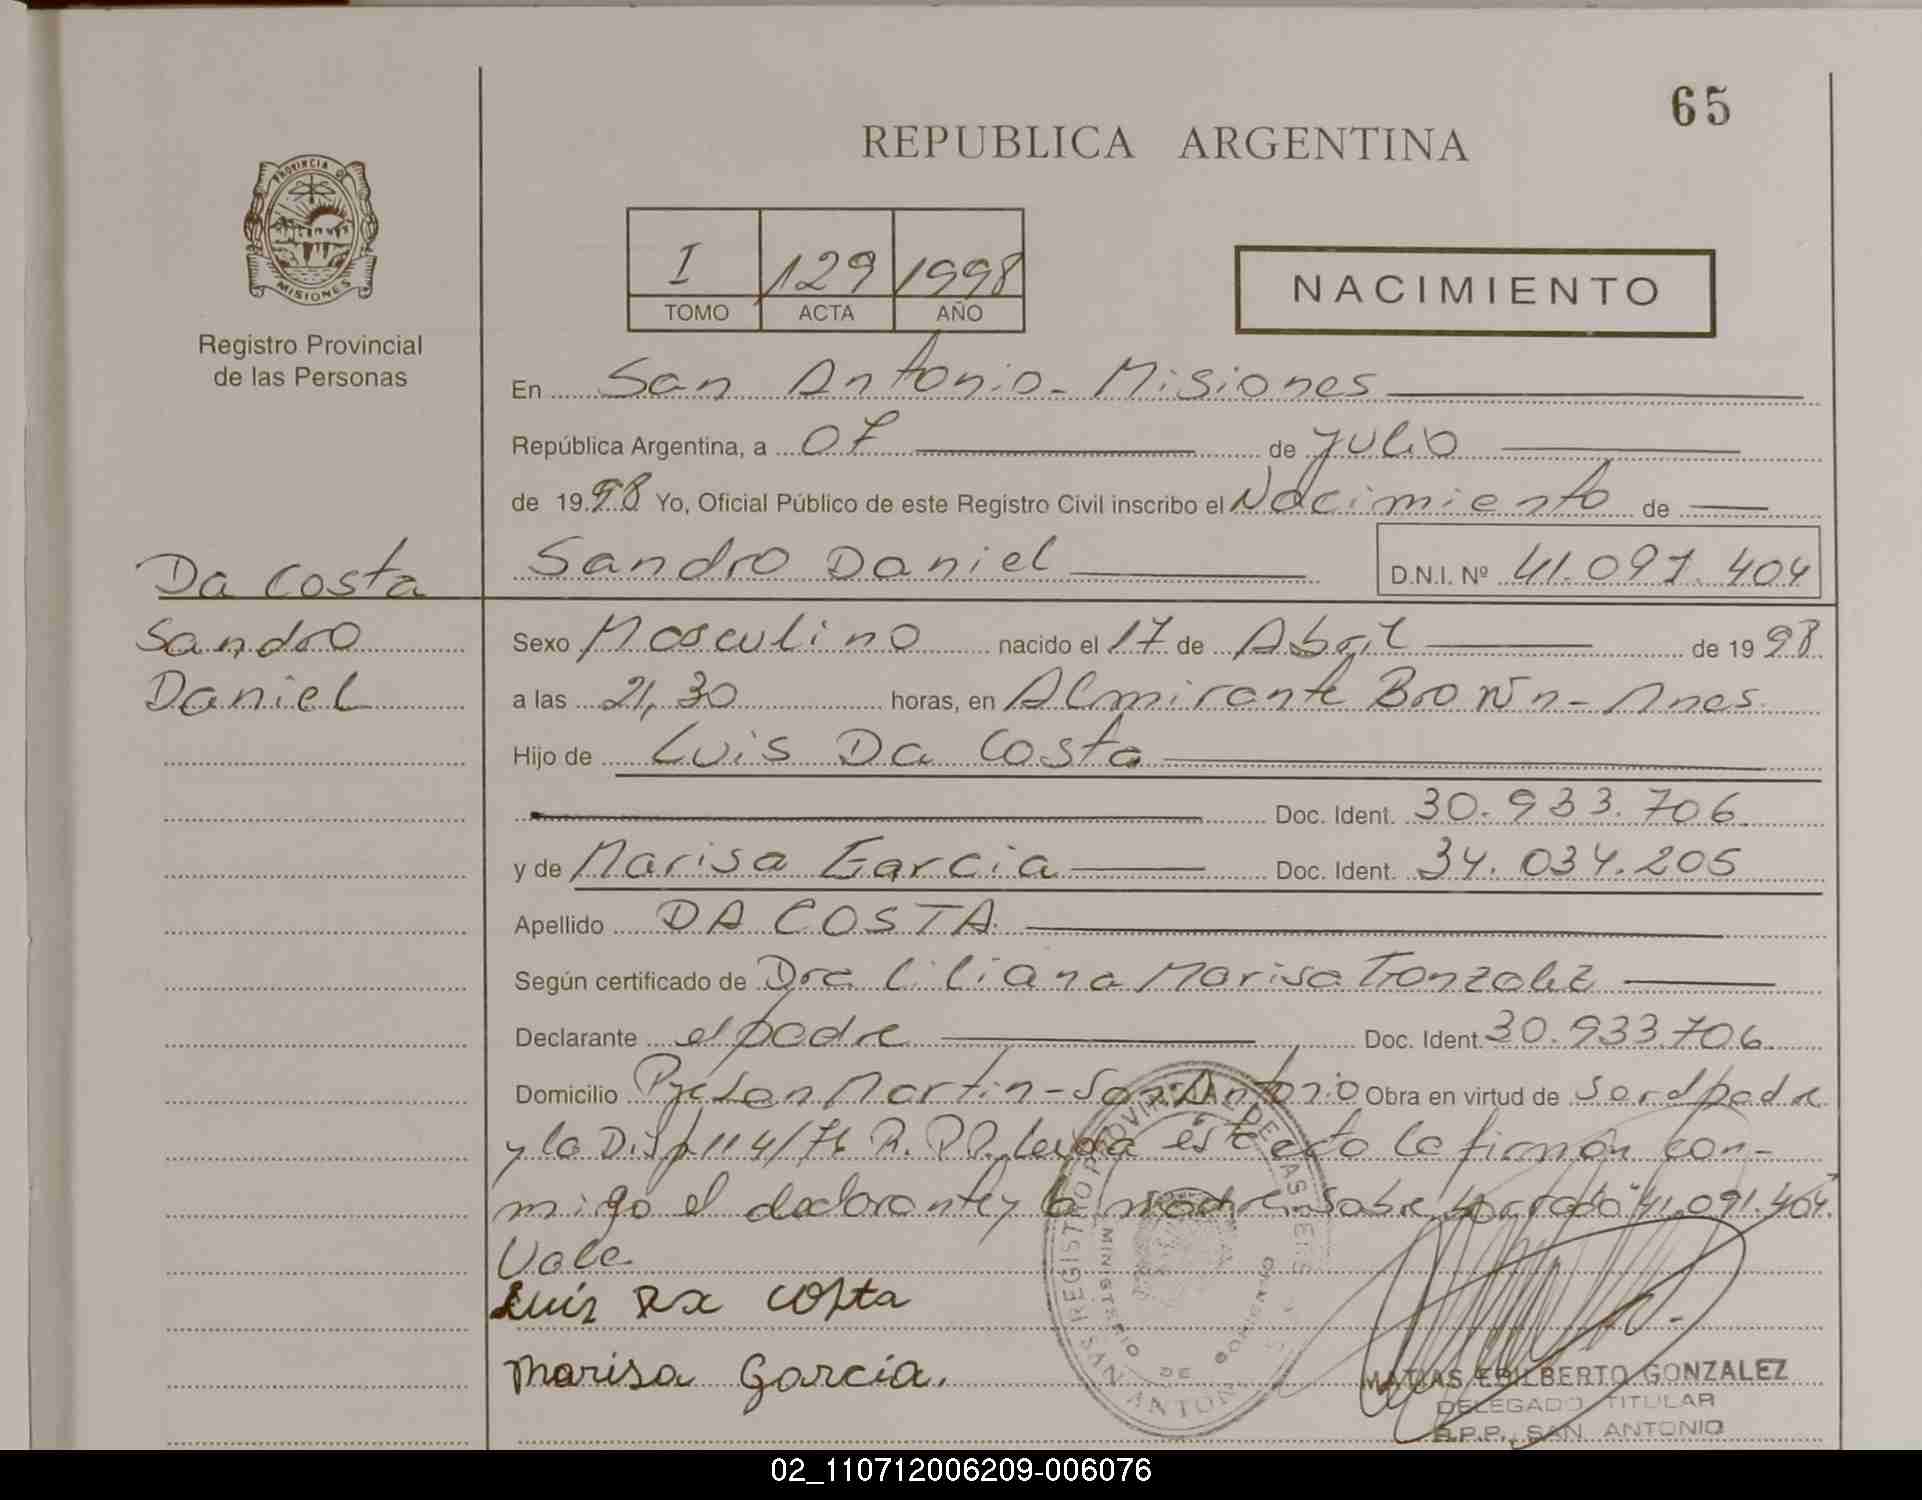 65
REPUBLICA ARGENTINA
PROVINCIA DE
MISIONES
Registro Provincial
de las Personas
I 129 1998
TOMO ACTA AÑO
NACIMIENTO
En San Antonio - Misiones
República Argentina, a 07 de Julio
de 1998 Yo, Oficial Público de este Registro Civil inscribo el Nacimiento de
Sandro Daniel D.N.I. Nº 41.091.404
Da Costa
Sandro
Daniel
Sexo Masculino nacido el 17 de Abril de 1998
a las 21,30 horas, en Almirante Brown - Mnes.
Hijo de Luis Da Costa
Doc. Ident. 30.933.706
y de Marisa Garcia Doc. Ident. 34.034.205
Apellido DA COSTA
Según certificado de Dra Liliana Marisa Gonzalez
Declarante el padre Doc. Ident. 30.933.706
Domicilio Pje San Martin - San Antonio Obra en virtud de ser el padre
y la Disp 114/76 R.P.P. leída ésta acta la firman con-
migo el declarante y la madre. Sobre borrado "41.091.404"
Vale
Luis Da Costa
Marisa Garcia.
REGISTRO PROVINCIAL DE LAS PERSONAS
MINISTERIO DE GOBIERNO
SAN ANTONIO
MATIAS EDILBERTO GONZALEZ
DELEGADO TITULAR
R.P.P. SAN ANTONIO
02_110712006209-006076